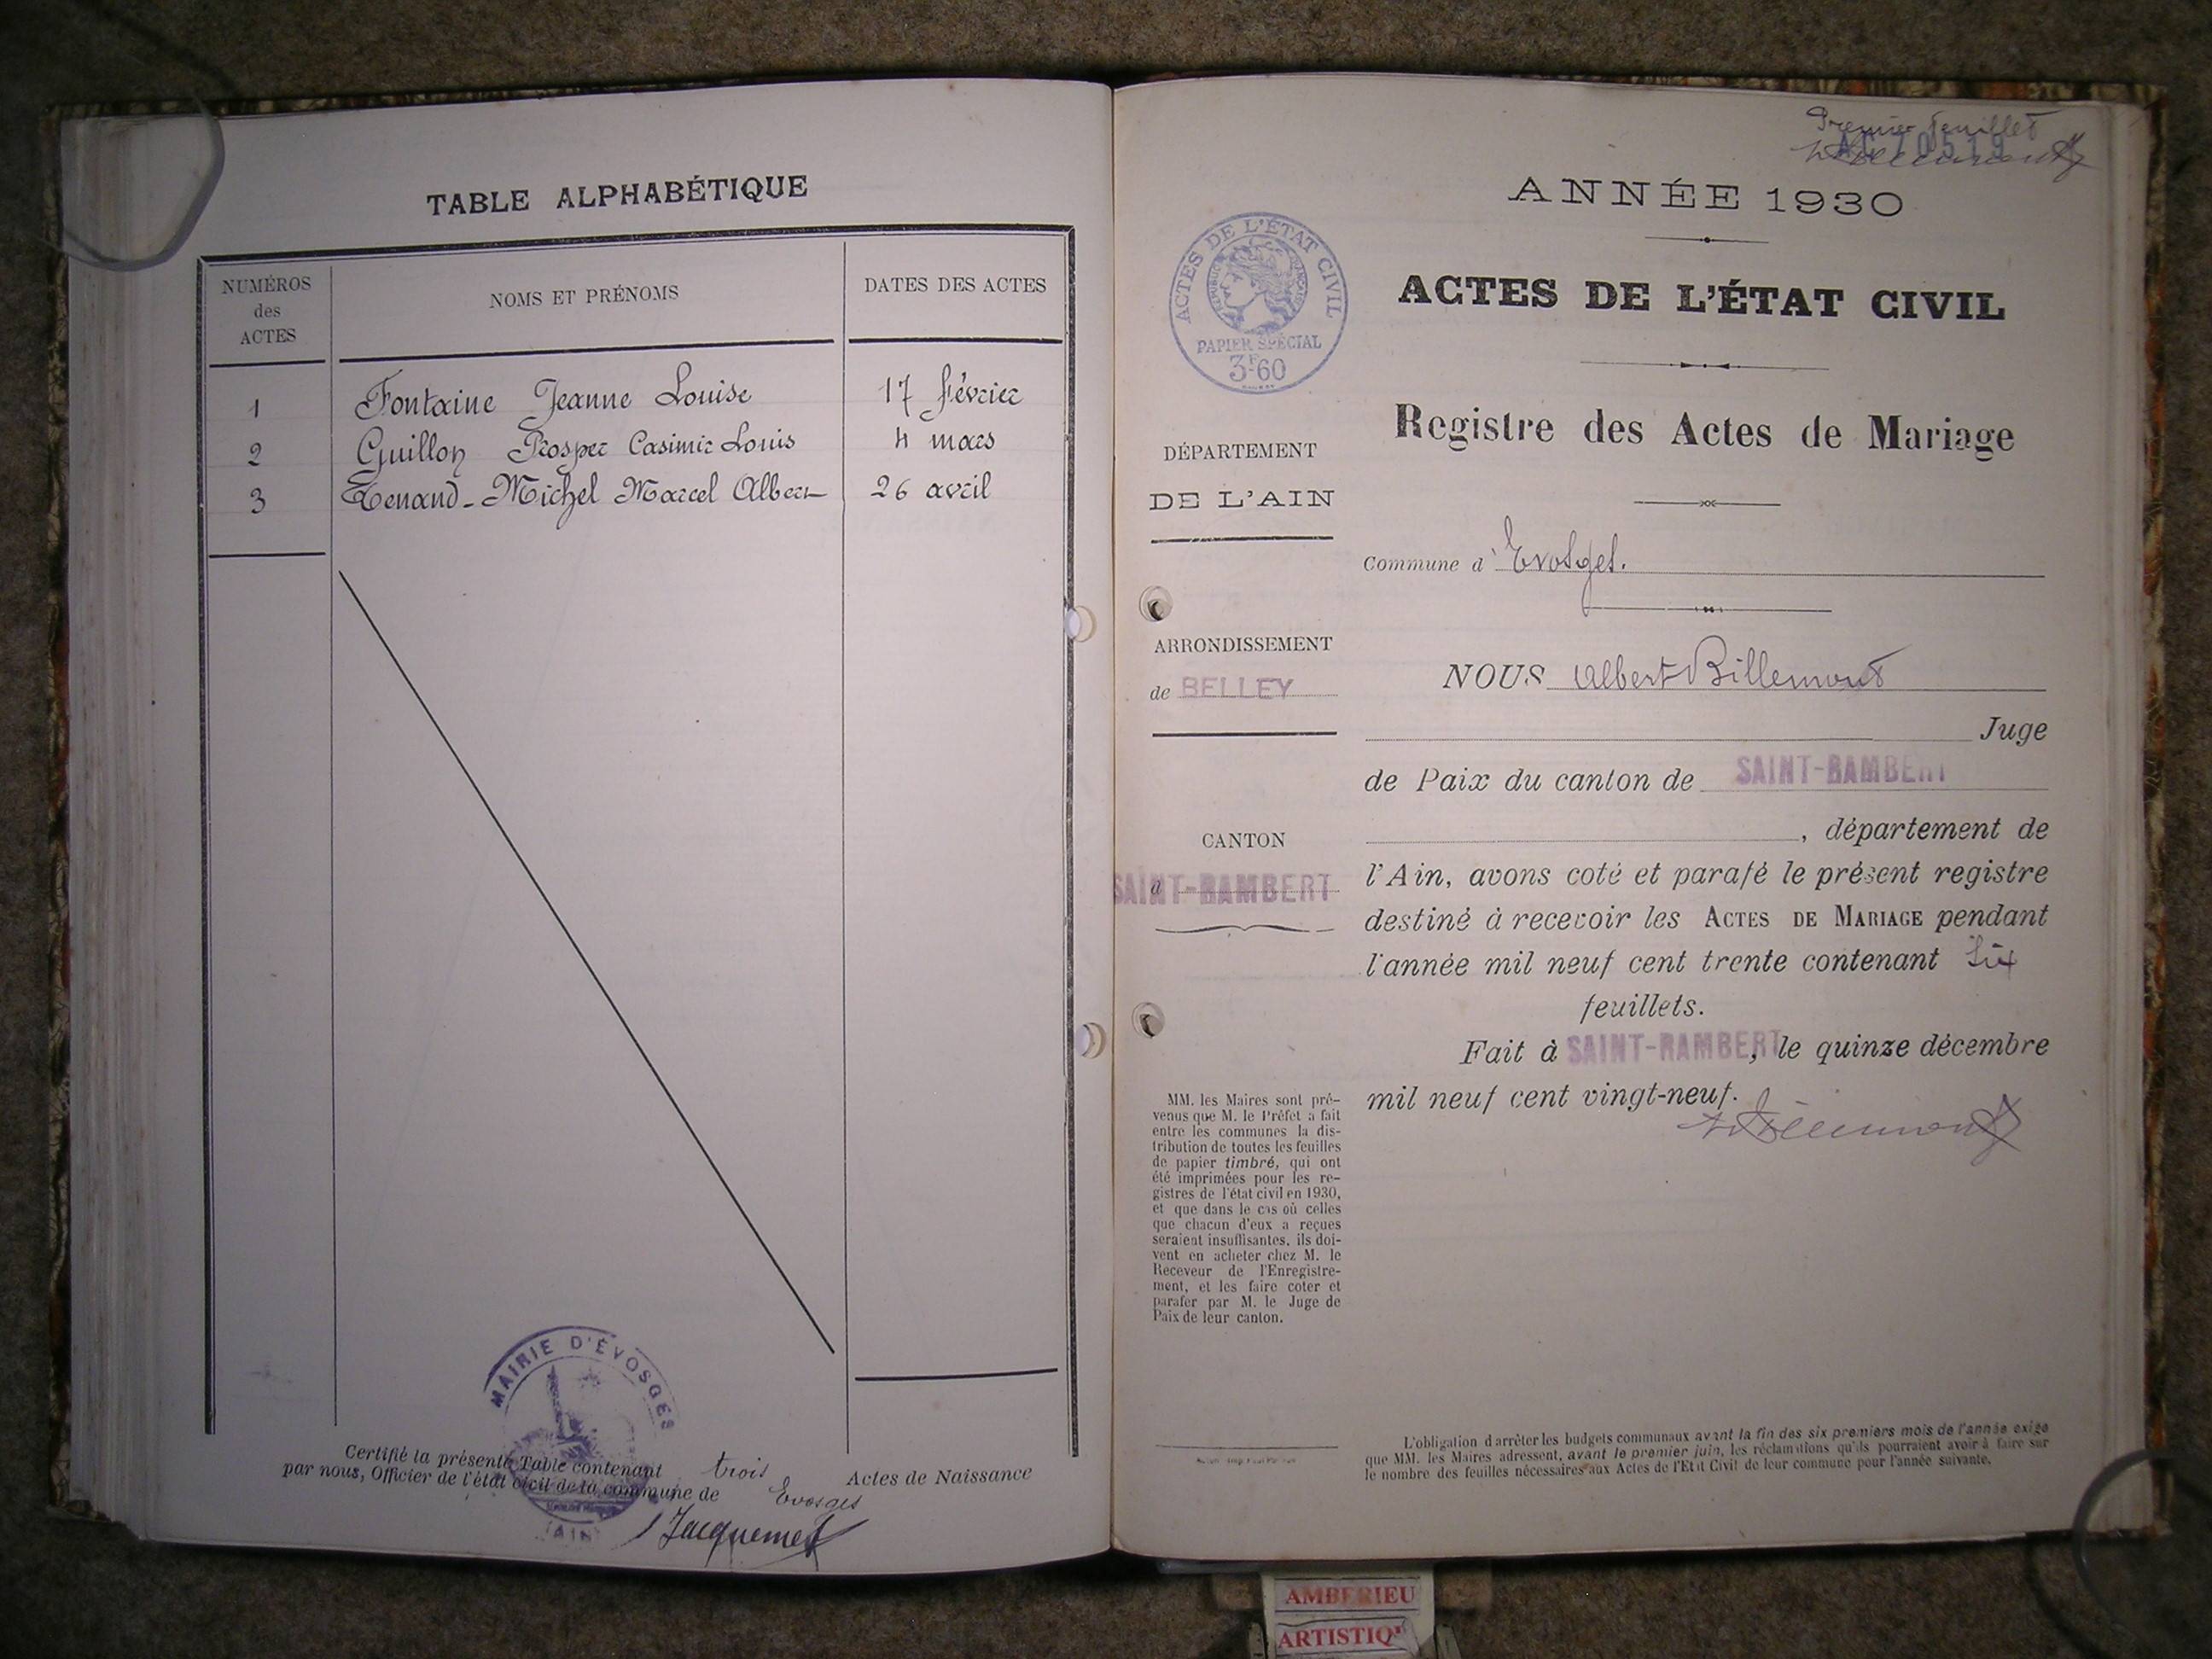 TABLE ALPHABÉTIQUE
NUMÉROS
des
ACTES
NOMS ET PRÉNOMS
DATES DES ACTES
1 Fontaine Jeanne Louise 17 février
2 Guillon Prosper Casimir Louis 4 mars
3 Renand-Michel Marcel Albert 26 avril
MAIRIE D'ÉVOSGES
(AIN)
Certifié la présente Table contenant trois Actes de Naissance
par nous, Officier de l'état civil de la commune de Evosges
Jacquemet
Premier feuillet
AC 70519
ANNÉE 1930
ACTES DE L'ÉTAT CIVIL
RÉPUBLIQUE FRANÇAISE
PAPIER SPÉCIAL
3F60
ACTES DE L'ÉTAT CIVIL
Registre des Actes de Mariage
DÉPARTEMENT
DE L'AIN
Commune d'Evosges.
ARRONDISSEMENT
de BELLEY
CANTON
d SAINT-RAMBERT
NOUS Albert Billemont
Juge
de Paix du canton de SAINT-RAMBERT
, département de
l'Ain, avons coté et parafé le présent registre
destiné à recevoir les ACTES DE MARIAGE pendant
l'année mil neuf cent trente contenant six
feuillets.
Fait à SAINT-RAMBERT, le quinze décembre
mil neuf cent vingt-neuf.
MM. les Maires sont pré-
venus que M. le Préfet a fait
entre les communes la dis-
tribution de toutes les feuilles
de papier timbré, qui ont
été imprimées pour les re-
gistres de l'état civil en 1930,
et que dans le cas où celles
que chacun d'eux a reçues
seraient insuffisantes, ils doi-
vent en acheter chez M. le
Receveur de l'Enregistre-
ment, et les faire coter et
parafer par M. le Juge de
Paix de leur canton.
L'obligation d'arrêter les budgets communaux avant la fin des six premiers mois de l'année exige
que MM. les Maires adressent, avant le premier juin, les réclamations qu'ils pourraient avoir à faire sur
le nombre des feuilles nécessaires aux Actes de l'Etat Civil de leur commune pour l'année suivante.
AMBERIEU
ARTISTIQ